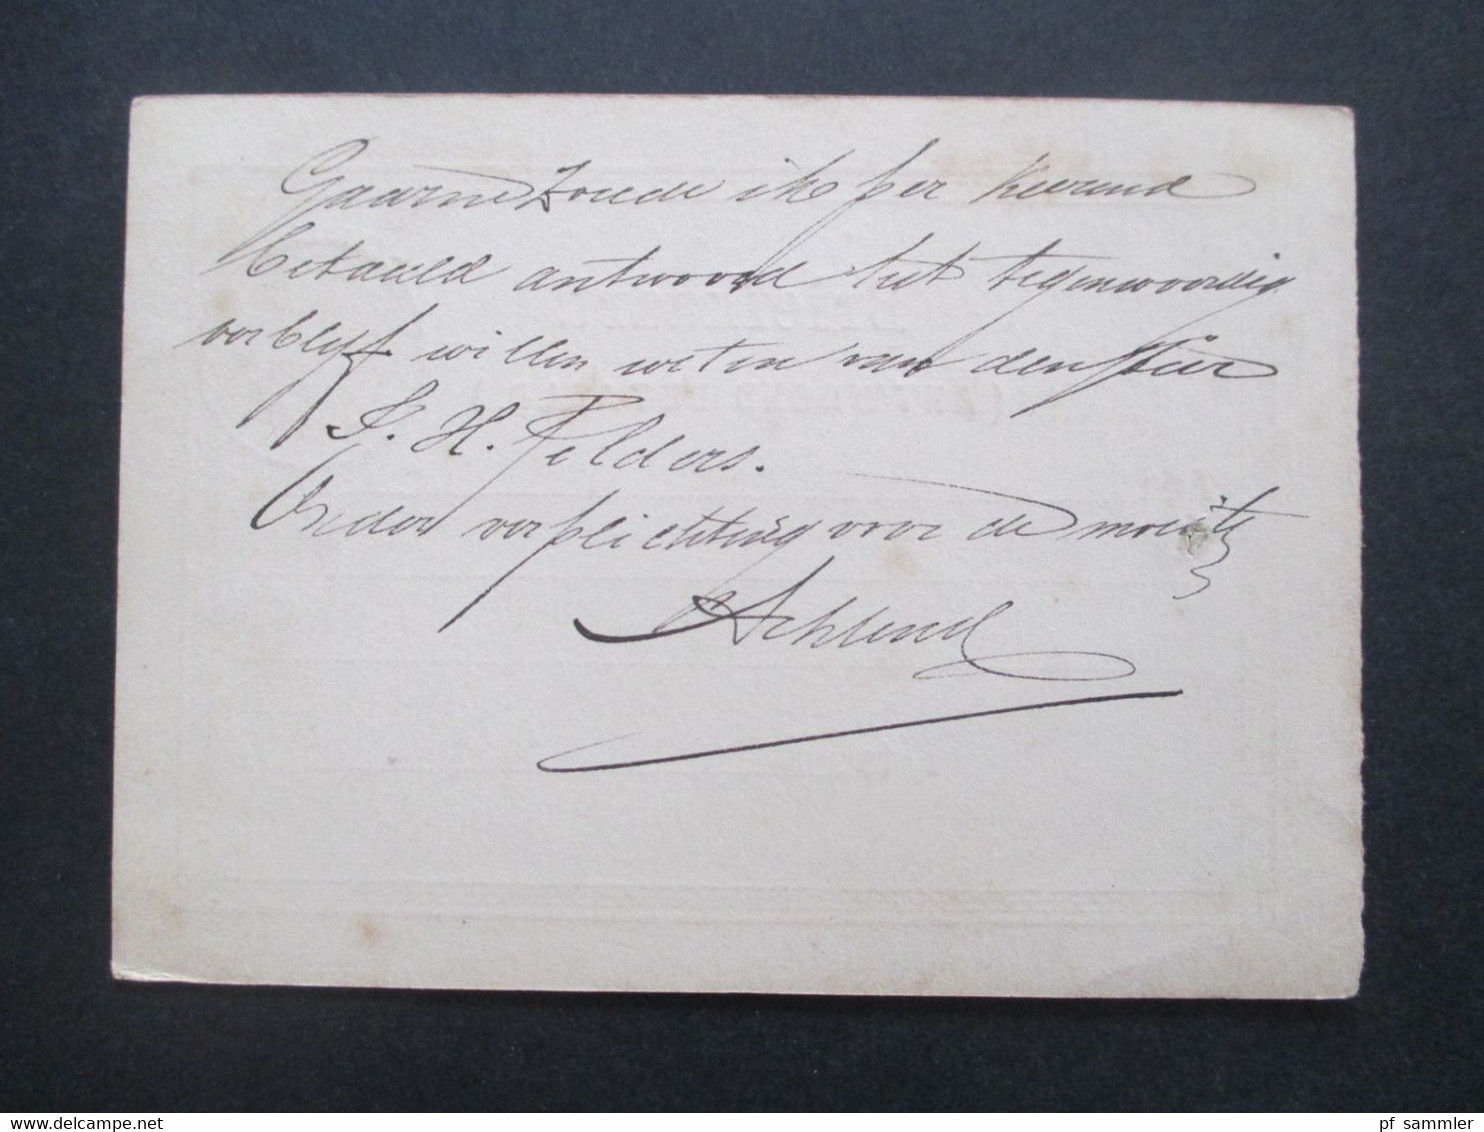 Gaarne zoude ik per keerend
betaald antwoord het tegenwoordig
verblyf willen weten van den Heer
J. H. Pelders.
Onder verplichting voor de moeite
delcampe.net
pf_sammler